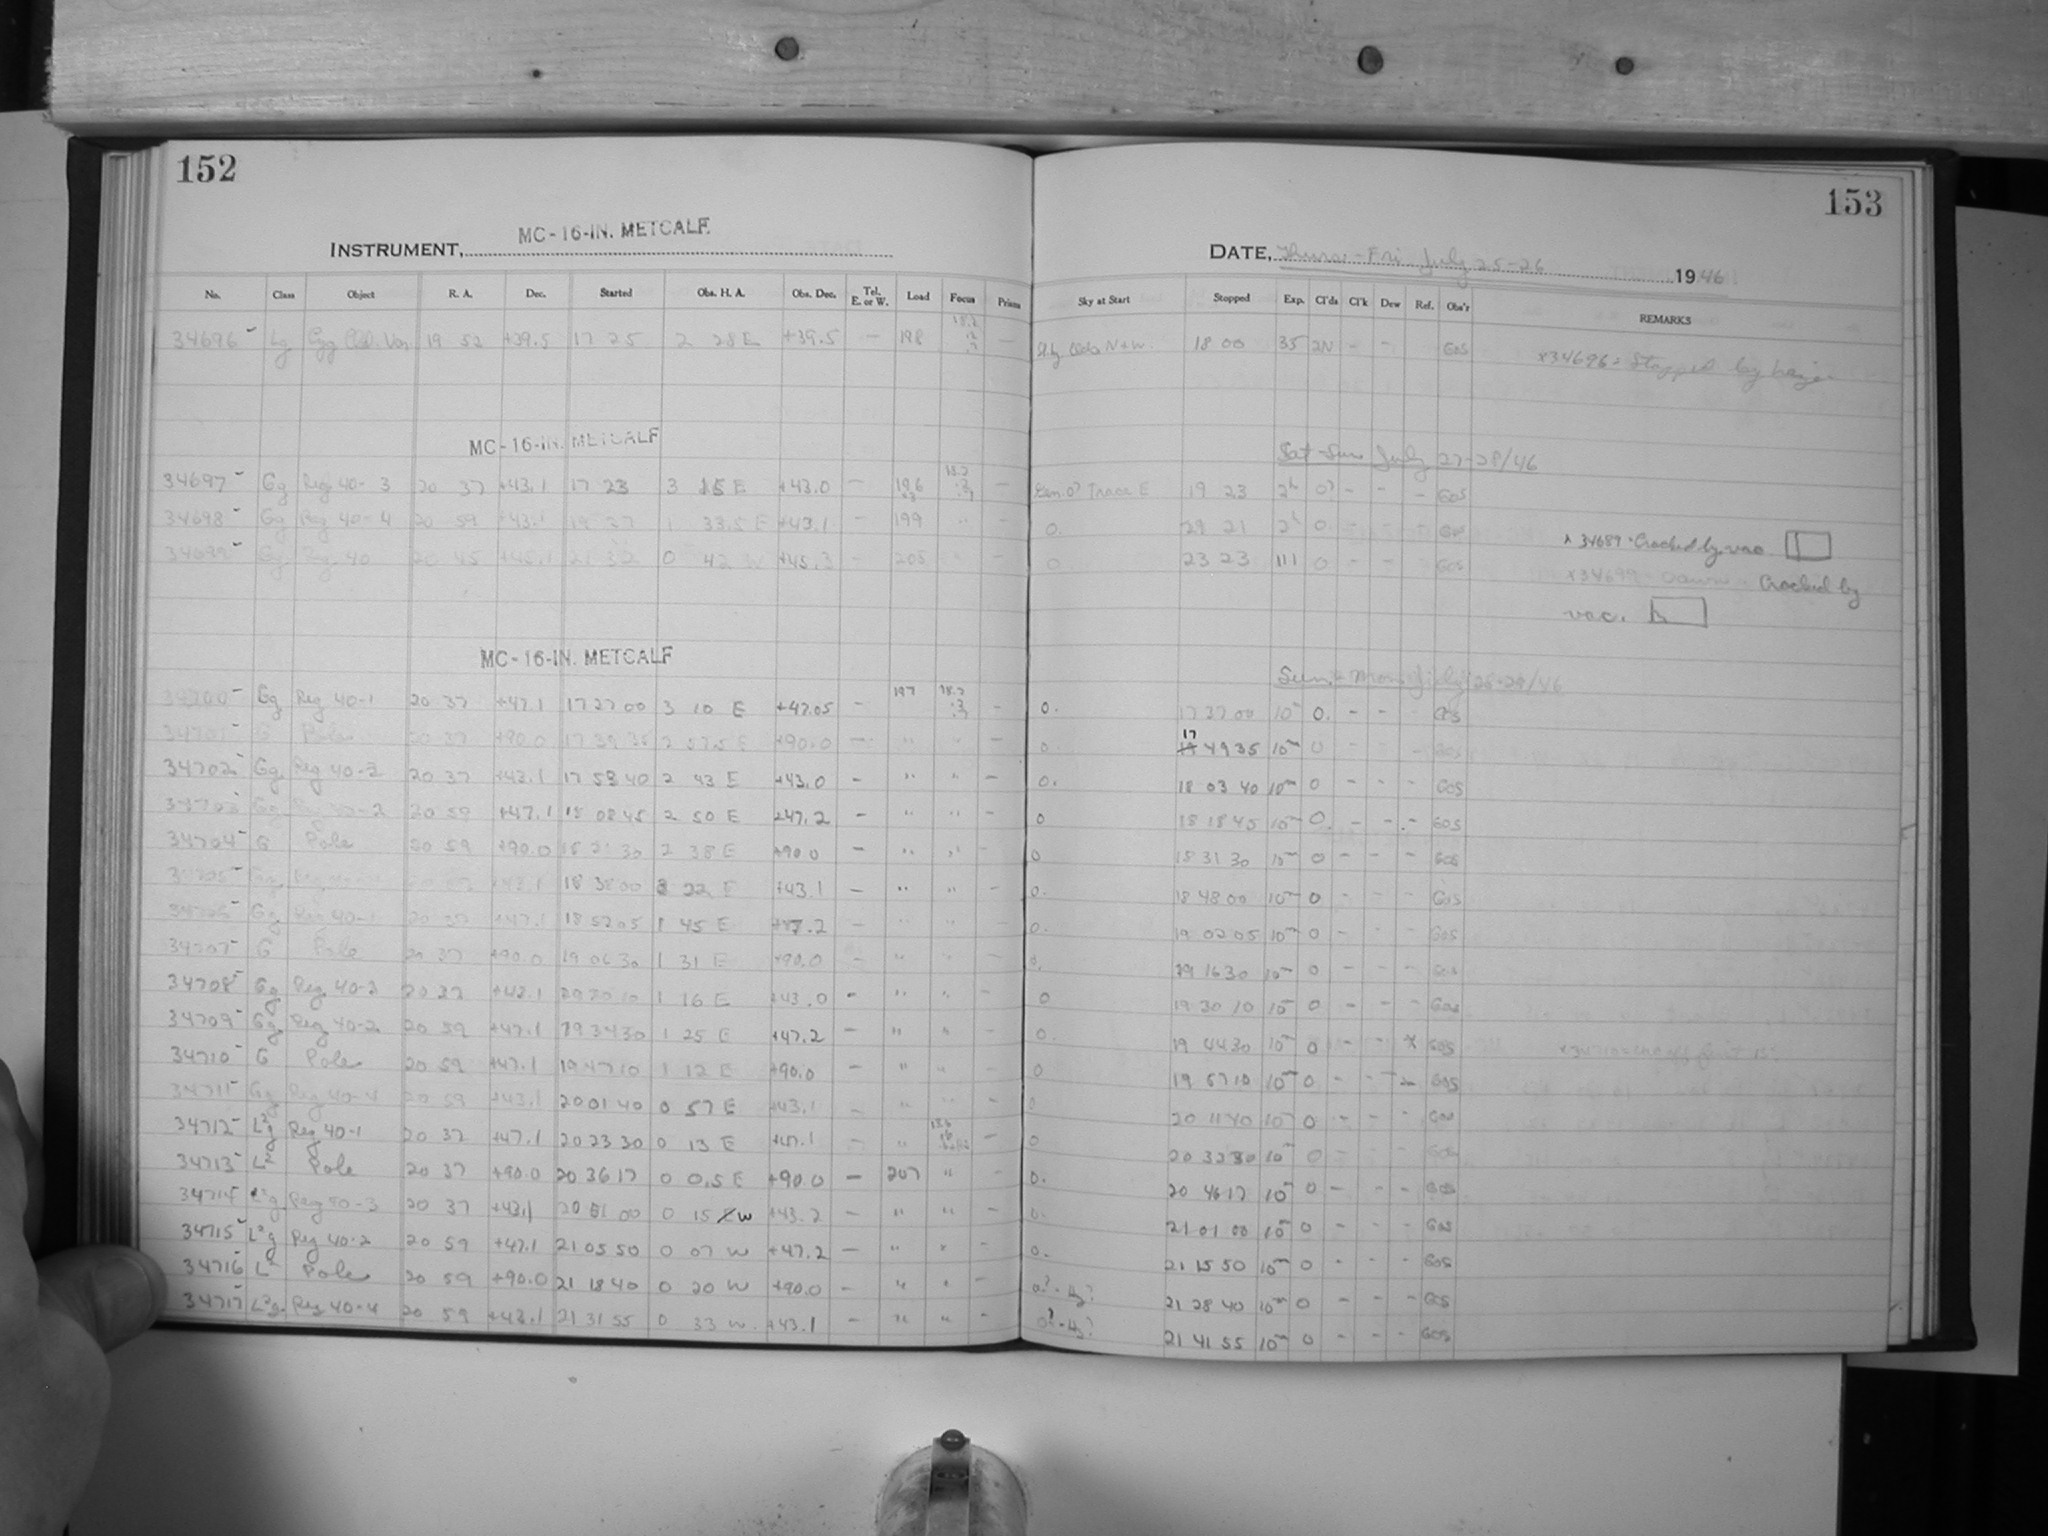 152
153
INSTRUMENT, MC-16-IN. METCALF
DATE, Thurs-Fri July 25-26 1946
No. Class Object R. A. Dec. Started Obs. H. A. Obs. Dec. Tel. E. or W. Load Focus Prism Sky at Start Stopped Exp. Cl'ds Cl'k Dew Ref. Obs'r REMARKS
34696 19 52 +39.5 17 25 2 28 E +39.5 - 198 - 18 00 35 2N - - GOS x34696 = Stopped by haze
MC-16-IN. METCALF
Sat-Sun July 27-28/46
34697 Gg Reg 40-3 20 37 +43.1 17 23 3 15 E +43.0 - 196 - Trace E 19 23 2h - - - GOS
34698 Gg Reg 40-4 20 59 +43.1 19 37 1 33.5 E +43.1 - 199 " - 0. 21 2h 0 - - - GOS
x 34689 - Cracked by vac.
34699 Gg Reg 40 20 45 +45.1 21 32 0 42 W +45.3 - 205 0 23 23 111 0 - - GOS
x34699 - Cracked by
vac.
MC-16-IN. METCALF
Sun-Mon July 28-29/46
34700 Gg Reg 40-1 20 37 +47.1 17 27 00 3 10 E +47.05 - 197 - 0. 17 37 00 10m 0. - - GOS
34701 G Pole 20 37 +90.0 17 39 35 2 57.5 E +90.0 - " " 0. 17 49 35 10m 0 - - - GOS
34702 Gg Reg 40-3 20 37 +43.1 17 53 40 2 43 E +43.0 - " " - 0. 18 03 40 10m 0 - - - GOS
34703 Gg Reg 40-2 20 59 +47.1 18 08 45 2 50 E +47.2 - " " - 0 18 18 45 10m 0. - - - GOS
34704 G Pole 20 59 +90.0 18 21 30 2 38 E +90.0 - " " - 0 18 31 30 10m 0 - - - GOS
34705 Gg +43.1 18 38 00 2 22 E +43.1 - " " - 0. 18 48 00 10m 0 - - - GOS
34706 Gg Reg 40-1 20 37 +47.1 18 52 05 1 45 E +47.2 - " " - 0. 19 02 05 10m 0 - - - GOS
34707 G Pole 20 37 +90.0 19 06 30 1 31 E +90.0 - " " - 0. 19 16 30 10m 0 - - - GOS
34708 Gg Reg 40-3 20 37 +43.1 20 10 1 16 E +43.0 - " " - 0 19 30 10 10m 0 - - - GOS
34709 Gg Reg 40-2 20 59 +47.1 19 34 30 1 25 E +47.2 - " " - 0. 19 44 30 10m 0 - - x GOS
34710 G Pole 20 59 +47.1 19 47 10 1 12 E +90.0 - " " - 0 19 57 10 10m 0 - - GOS
34711 Gg Reg 40-4 20 59 +43.1 20 01 40 0 57 E +43.1 - " " - 0 20 11 40 10m 0 - - - GOS
34712 L²g Reg 40-1 20 37 +47.1 20 23 30 0 13 E +47.1 - " - 0 20 33 30 10m 0 - - - GOS
34713 L² Pole 20 37 +90.0 20 36 17 0 0.5 E +90.0 - 207 " - 0. 20 46 17 10m 0 - - - GOS
34714 L²g Reg 40-3 20 37 +43.1 20 51 00 0 15 W +43.2 - " " - 0. 21 01 00 10m 0 - - - GOS
34715 L²g Reg 40-2 20 59 +47.1 21 05 50 0 07 W +47.2 - " " - 0. 21 15 50 10m 0 - - - GOS
34716 L² Pole 20 59 +90.0 21 18 40 0 20 W +90.0 - " " - 21 28 40 10m 0 - - - GOS
34717 L²g Reg 40-4 20 59 +43.1 21 31 55 0 33 W. +43.1 - " " - 21 41 55 10m 0 - - - GOS